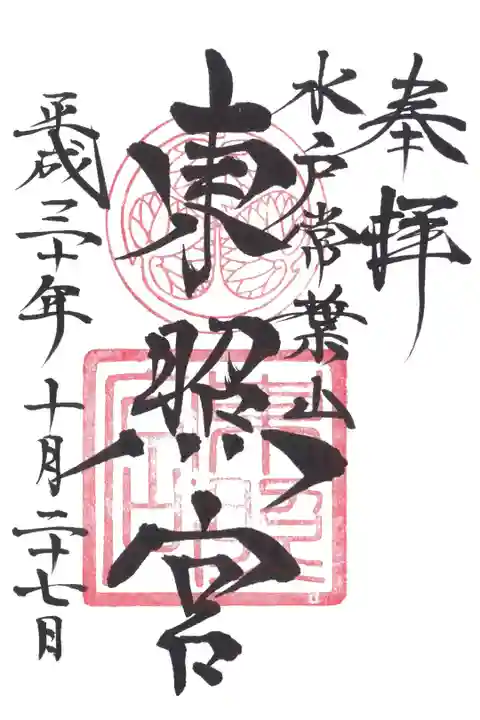 奉拝
水戸常葉山
東照宮
平成三十年十月二十七日